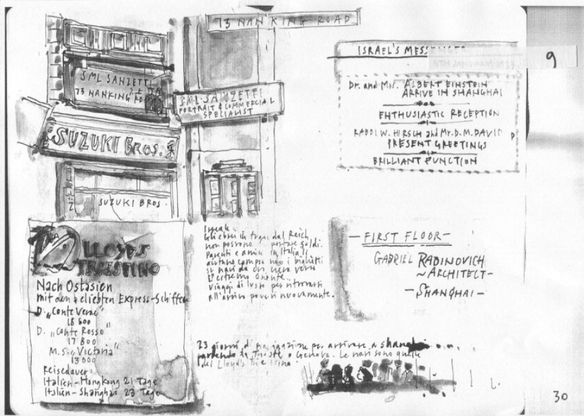 73 NANKING ROAD
SML SANZETTI
73 NANKING RO
SML. SANZETTI
PORTRAIT & COMMERCIAL
SPECIALIST
SUZUKI BROS.
SUZUKI BROS
ISRAEL'S
9
Dr. and Mrs. ALBERT EINSTEIN
ARRIVE IN SHANGHAI
ENTHUSIASTIC RECEPTION
RABBI W. HIRSCH and Mr. D. M. DAVID
PRESENT GREETINGS
BRILLIANT FUNCTION
LLOYD
TRIESTINO
Nach Ostasien
mit den 4 beliebten Express-Schiffen
D. „Conte Verde"
18 800
D. „Conte Rosso"
17 800
M. S. „Victoria"
13 000
Reisedauer:
Italien-Hongkong 21 Tage
Italien-Shanghai 23 Tage
Gli ebrei in fuga dal Reich
non possono portare soldi.
Parenti e amici in Italia li
aiutano
verso
l'estremo oriente.
Viaggi di lusso per ritrovarsi
all'arrivo poveri nuovamente.
FIRST FLOOR
GABRIEL RABINOVICH
~ ARCHITECT ~
- SHANGHAI -
23 giorni di navigazione per arrivare a Shanghai
partendo da Trieste o Genova. Le navi sono quelle
del Lloyd Triestino
30